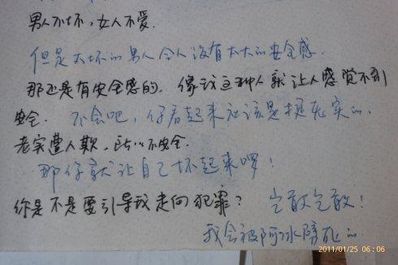 男人不坏，女人不爱。
但是太坏的男人令人没有太大的安全感。
那还是有安全感的。像我这种人就让人感觉不到
安全。 不会吧，你看起来应该是挺老实的。
老实遭人欺，所以不安全。
那你就让自己坏起来啰！
你是不是要引导我走向犯罪？ 岂敢岂敢！
我会被阿冰死的
2011/01/25 06:06